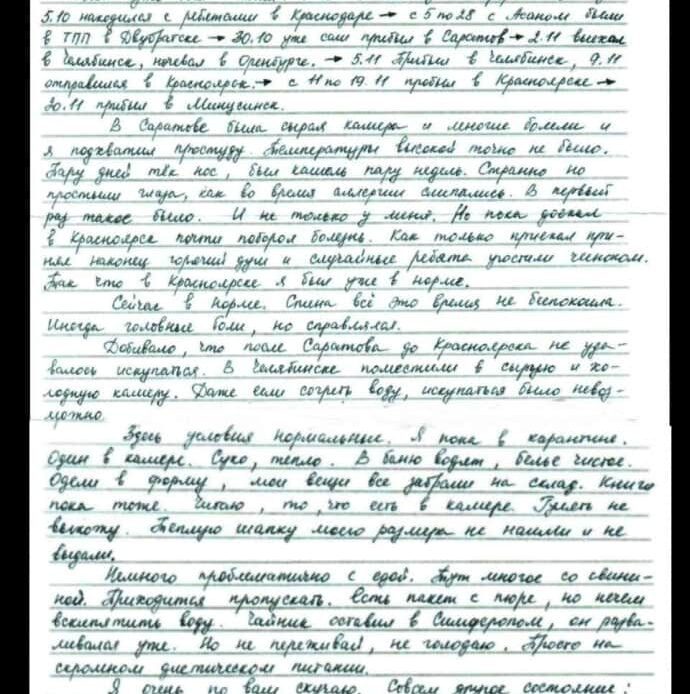 5.10 находился с ребятами в Краснодаре → с 5 по 28 с Асаном были
в ТПП в Двубратске → 30.10 уже сам прибыл в Саратов → 2.11 выехал
в Челябинск, ночевал в Оренбурге. → 5.11 Прибыл в Челябинск, 9.11
отправился в Красноярск. → с 11 по 19.11 пробыл в Красноярске →
20.11 прибыл в Минусинск.
В Саратове была сырая камера и многие болели и
я подхватил простуду. Температуры высокой точно не было.
Пару дней тёк нос, был кашель пару недель. Странно но
простыли глаза, как во время аллергии слипались. В первый
раз такое было. И не только у меня. Но пока доехал
в Красноярск почти поборол болезнь. Как только приехал при-
нял наконец горячий душ и случайные ребята угостили чесноком.
Так что в Красноярске я был уже в норме.
Сейчас в норме. Спина всё это время не беспокоила.
Иногда головные боли, но справлялся.
Добивало, что после Саратова до Красноярска не уда-
валось искупаться. В Челябинске поместили в сырую и хо-
лодную камеру. Даже если согреть воду, искупаться было невоз-
можно.
Здесь условия нормальные. Я пока в карантине.
Один в камере. Сухо, тепло. В баню водят, белье чистое.
Одели в форму, мои вещи все забрали на склад. Книги
пока тоже. Читаю, то, что есть в камере. Гулять не
выхожу. Теплую шапку моего размера не нашли и не
выдали.
Немного проблематично с едой. Тут многое со свини-
ной. Приходится пропускать. Есть пакет с пюре, но нечем
вскипятить воду. Чайник оставил в Симферополе, он разва-
ливался уже. Но не переживай, не голодаю. Просто на
скромном диетическом питании.
Я очень по вам скучаю. Совсем другое состояние: